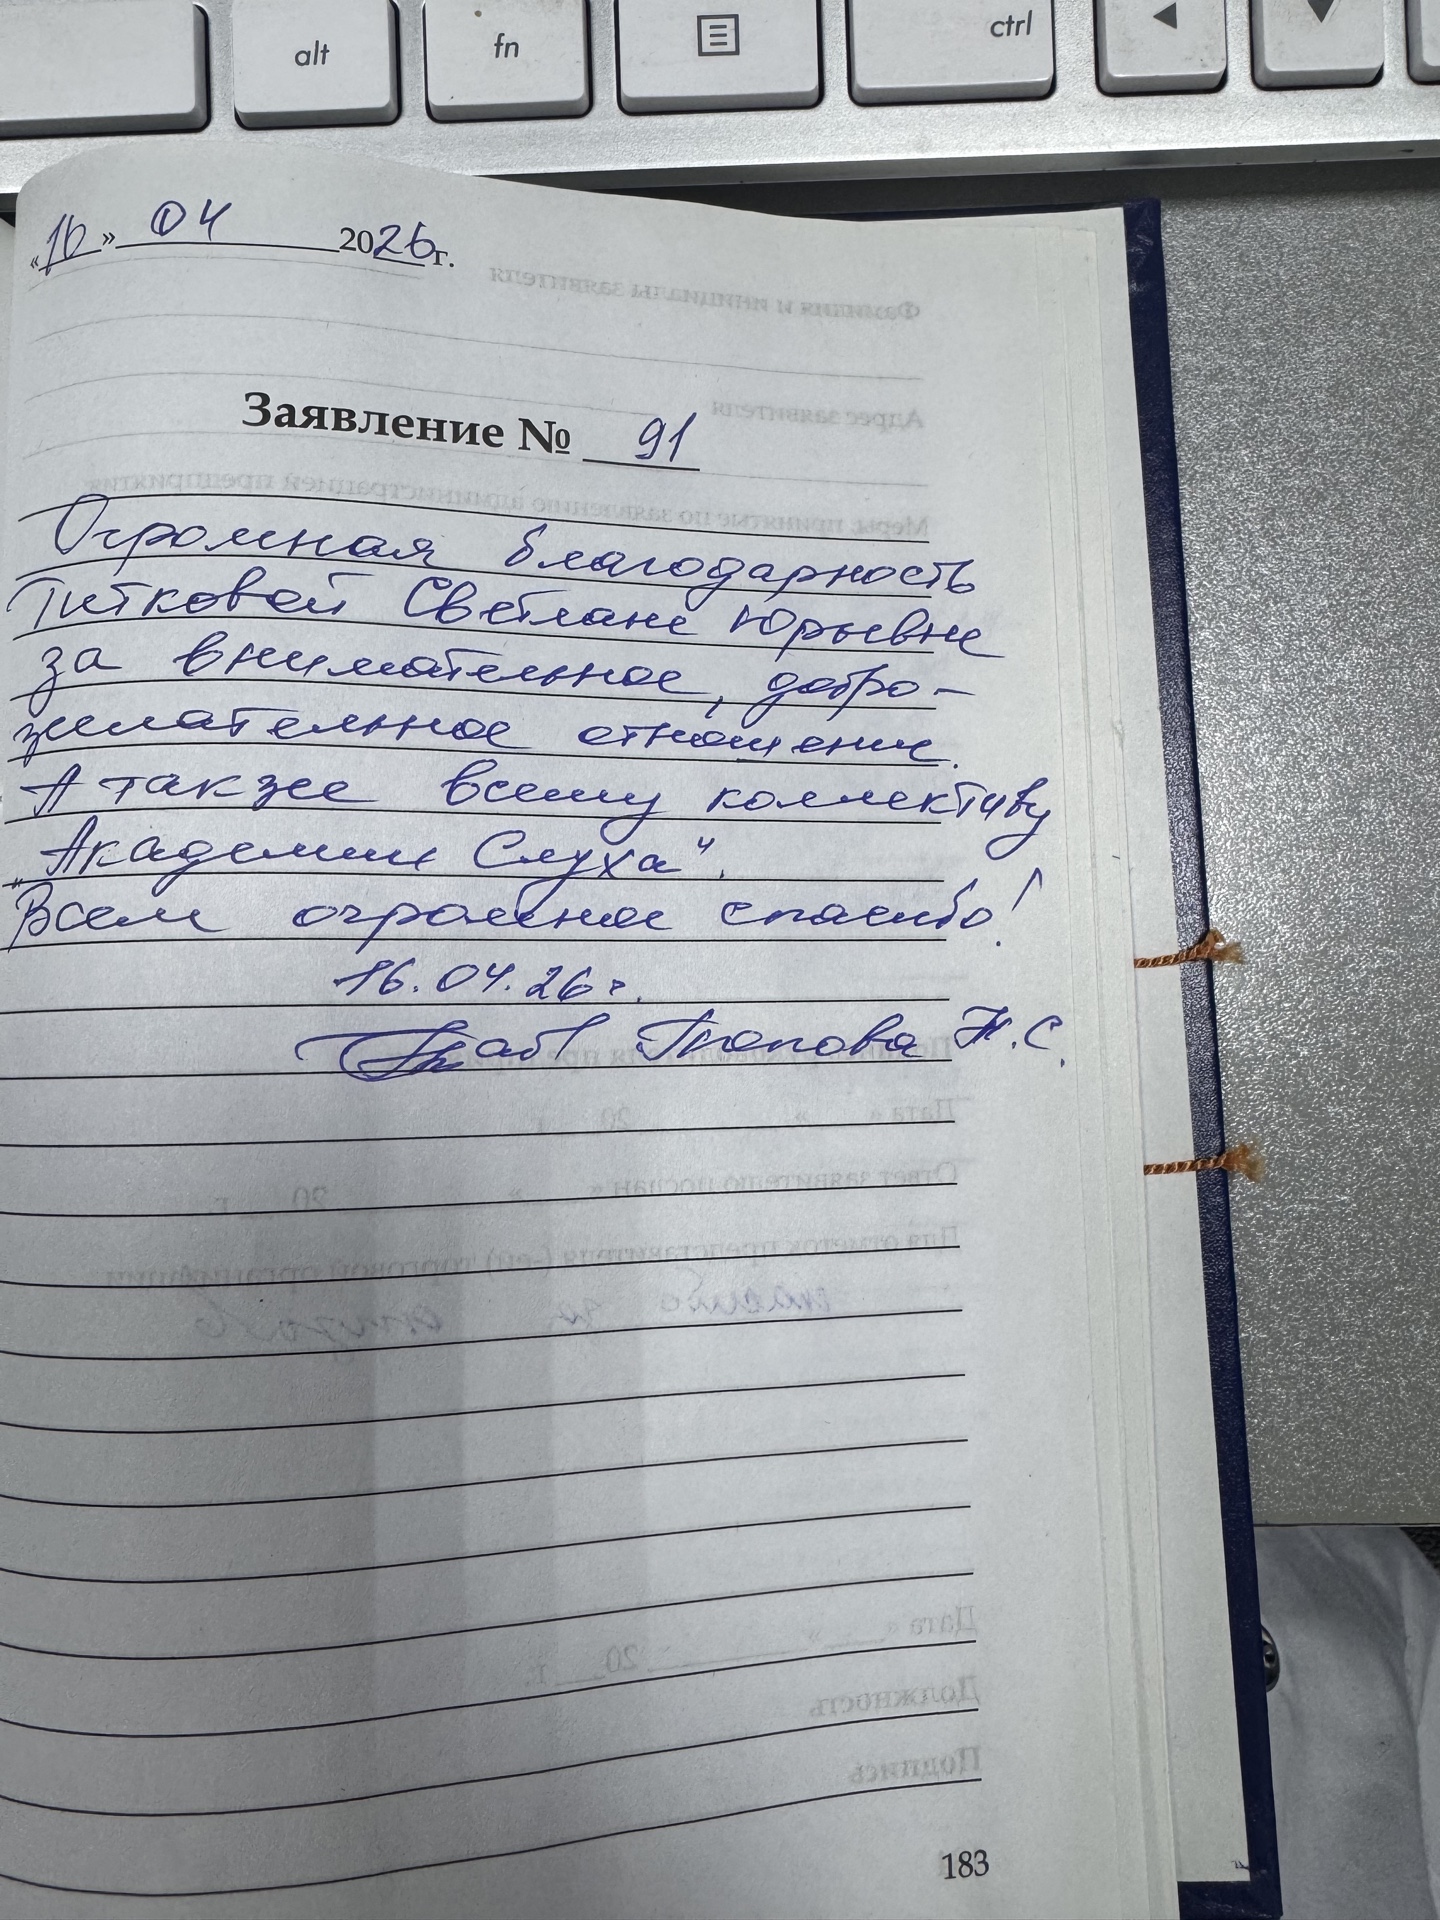 alt fn ctrl
«16» 04 2026г.
Заявление № 91
Огромная благодарность
Титковой Светлане Юрьевне
за внимательное, добро-
желательное отношение.
А также всему коллективу
„Академии Слуха".
Всем огромное спасибо!
16.04.26г.
183